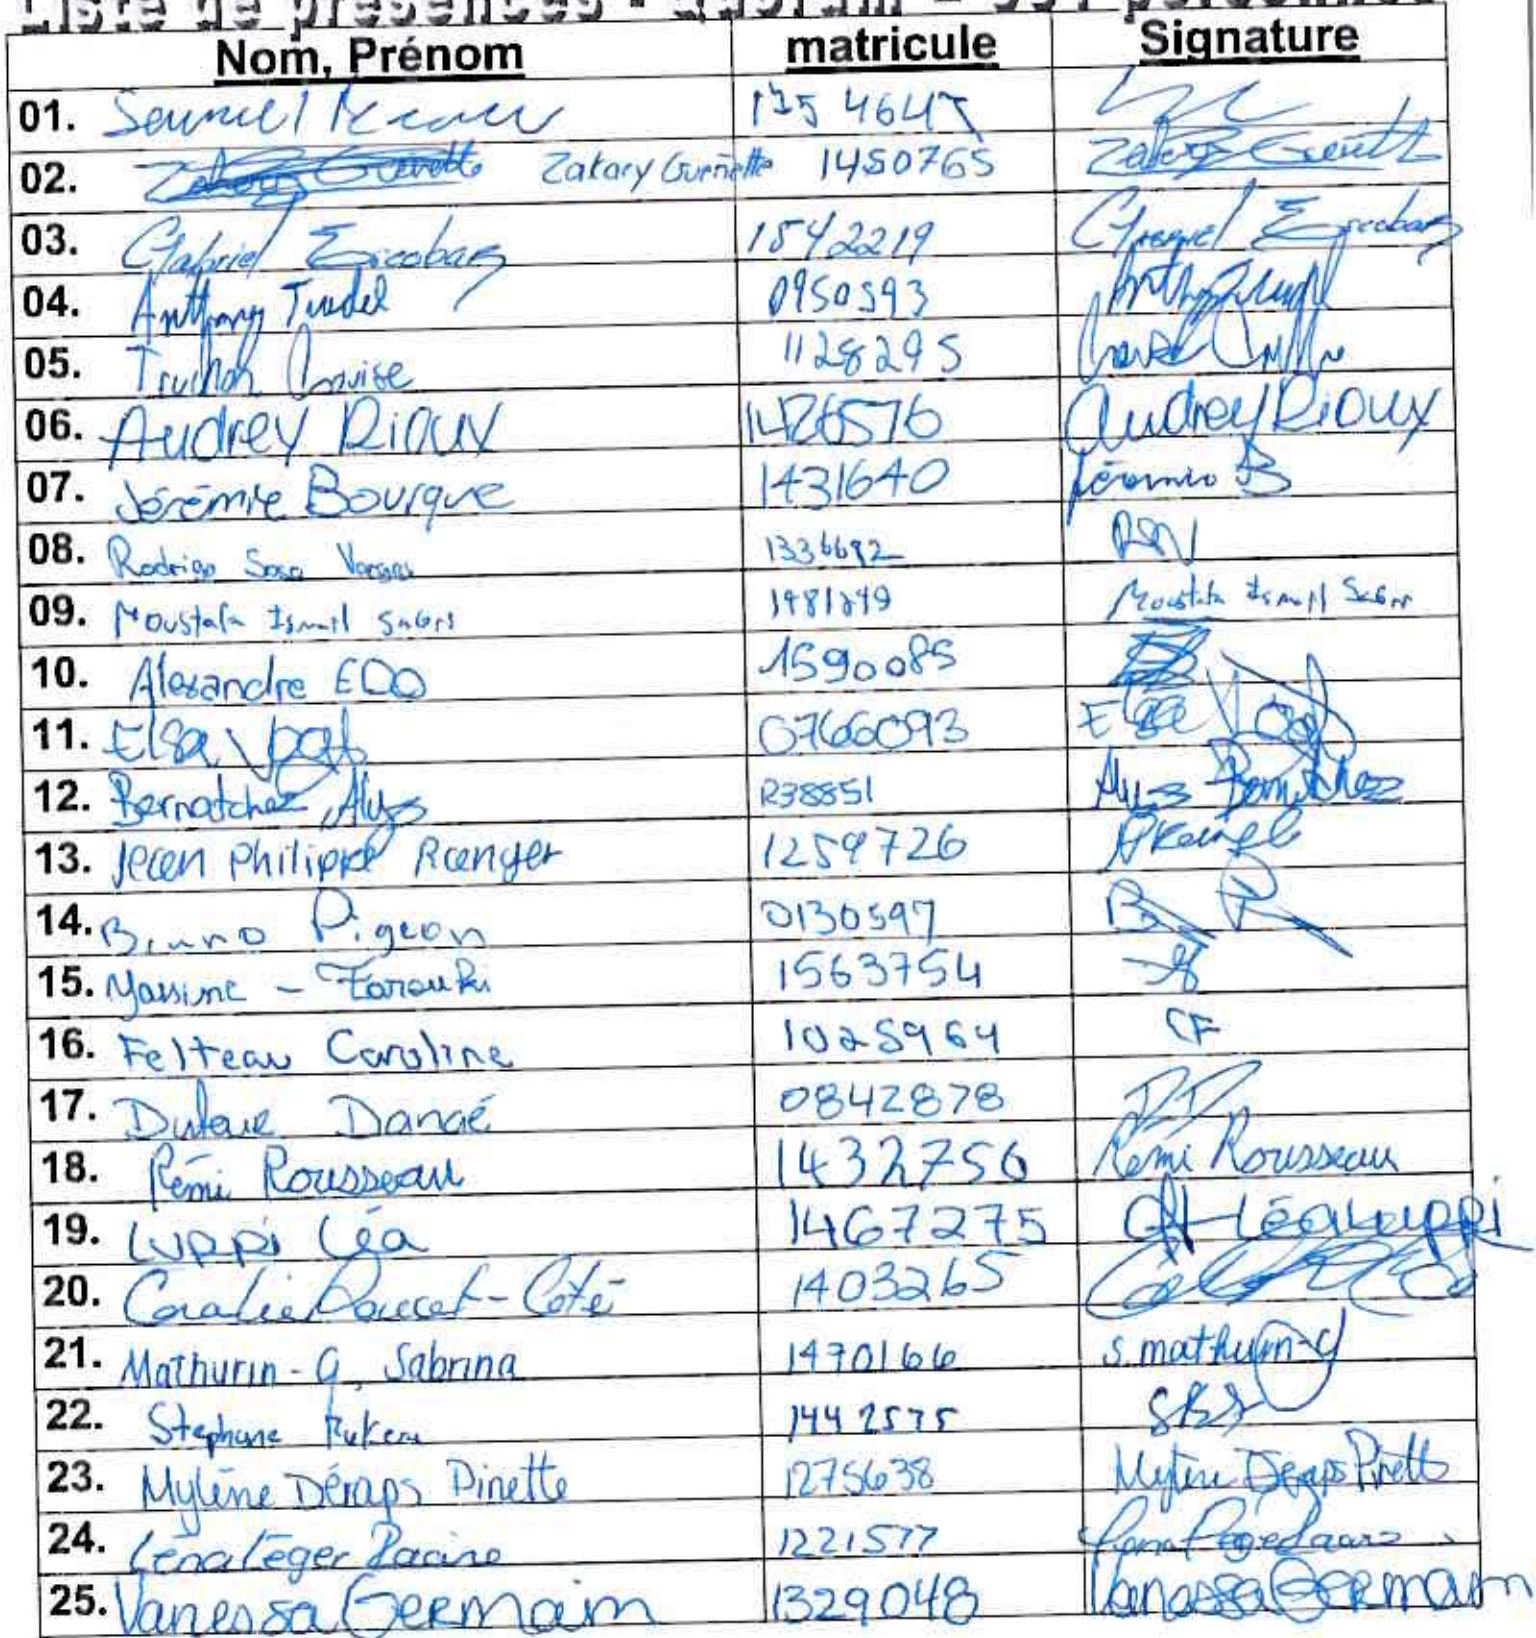 Liste de présences - quorum -
Nom, Prénom matricule Signature
01. Samuel
02. Zakary Guenette 1450765 Zakary Guenette
03. Gabriel Escobar 1542219 Gabriel Escobar
04. Anthony Trudel 0950593
05. Truchon Louise 1128295
06. Audrey Rioux 1426576 Audrey Rioux
07. Jérémie Bourque 1431640 Jérémie B
08. Rodrigo Sosa Vargas 1336692 RSV
09. Moustafa Ismail Sabri Moustafa Ismail Sabri
10. Alexandre EDO 1590085
11. Elsa 0766093 Elsa
12. Bernatchez, Alys 1238851 Alys Bernatchez
13. Jean Philippe Ranger 1259726
14. Bruno Pigeon 0130597 B P
15. Yassine - Farouki 1563754
16. Felteau Caroline 1025964 CF
17. Dufour Danaé 0842878 DD
18. Rémi Rousseau 1432756 Rémi Rousseau
19. Luppi Léa 1467275 Léa Luppi
20. Coralie Doucet-Côté 1403265
21. Mathurin-G, Sabrina 1470166 s.mathurin-g
22. Stephane 1442575
23. Mylène Déraps Pinette 1275638 Mylène Déraps Pinette
24. Léna Léger Racine 1221577 Léna Léger Racine
25. Vanessa Germain 1329048 Vanessa Germain